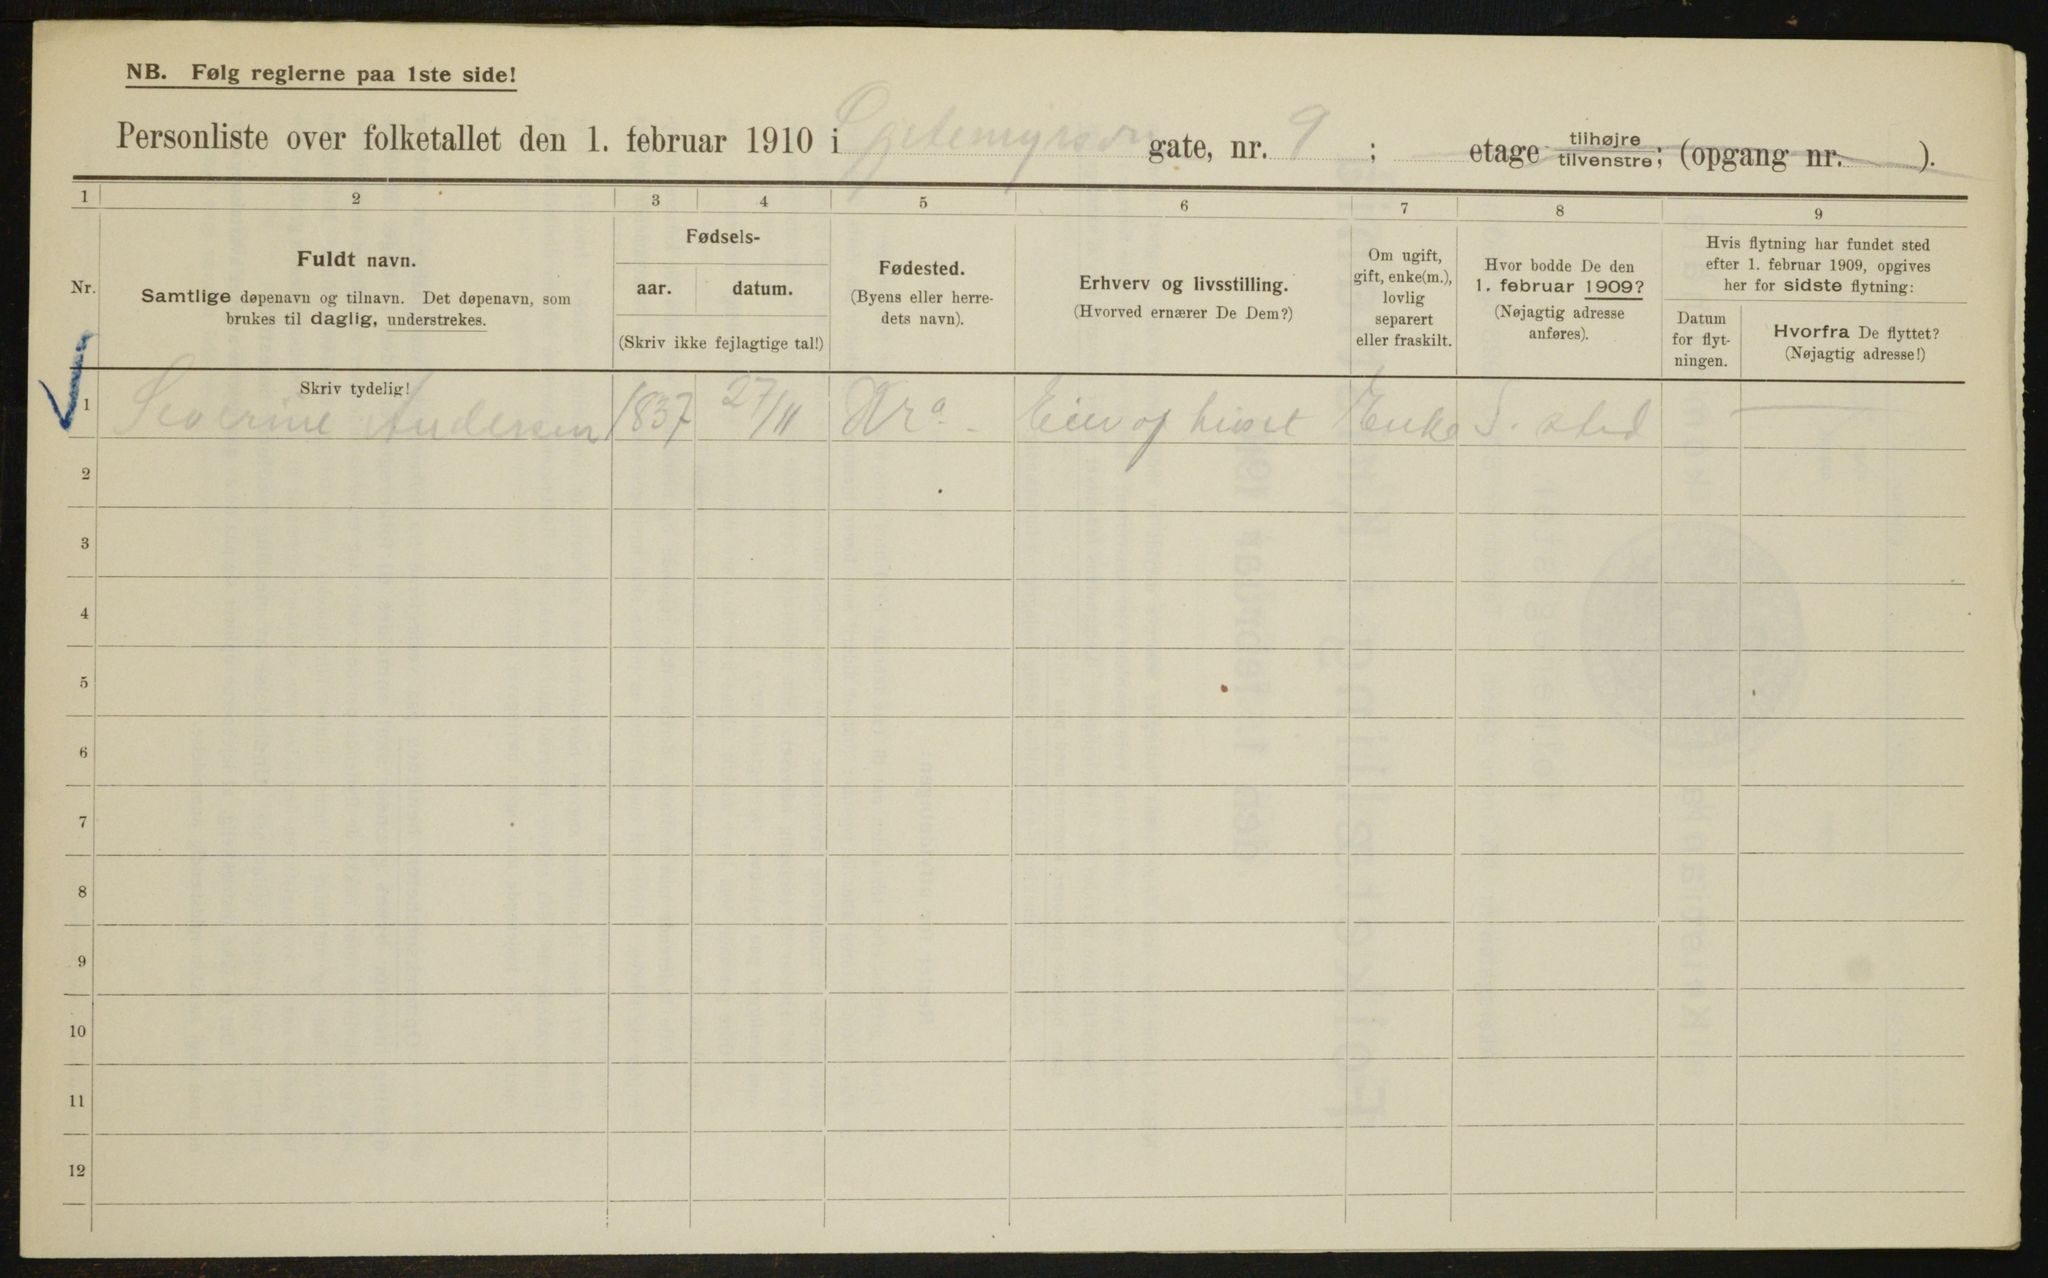 NB. Følg reglerne paa 1ste side!
Personliste over folketallet den 1. februar 1910 i gate, nr. 9 ; etage tilhøjre tilvenstre; (opgang nr. ).
1 2 3 4 5 6 7 8 9
Nr.
Fuldt navn.
Samtlige døpenavn og tilnavn. Det døpenavn, som
brukes til daglig, understrekes.
Fødsels-
aar. datum.
(Skriv ikke fejlagtige tal!)
Fødested.
(Byens eller herre-
dets navn).
Erhverv og livsstilling.
(Hvorved ernærer De Dem?)
Om ugift,
gift, enke(m.),
lovlig
separert
eller fraskilt.
Hvor bodde De den
1. februar 1909?
(Nøjagtig adresse
anføres).
Hvis flytning har fundet sted
efter 1. februar 1909, opgives
her for sidste flytning:
Datum
for flyt-
ningen.
Hvorfra De flyttet?
(Nøjagtig adresse!)
Skriv tydelig!
1 Severine Andersen 1837 27/11 Kra. Eier af huset Enke S. sted
2
3
4
5
6
7
8
9
10
11
12